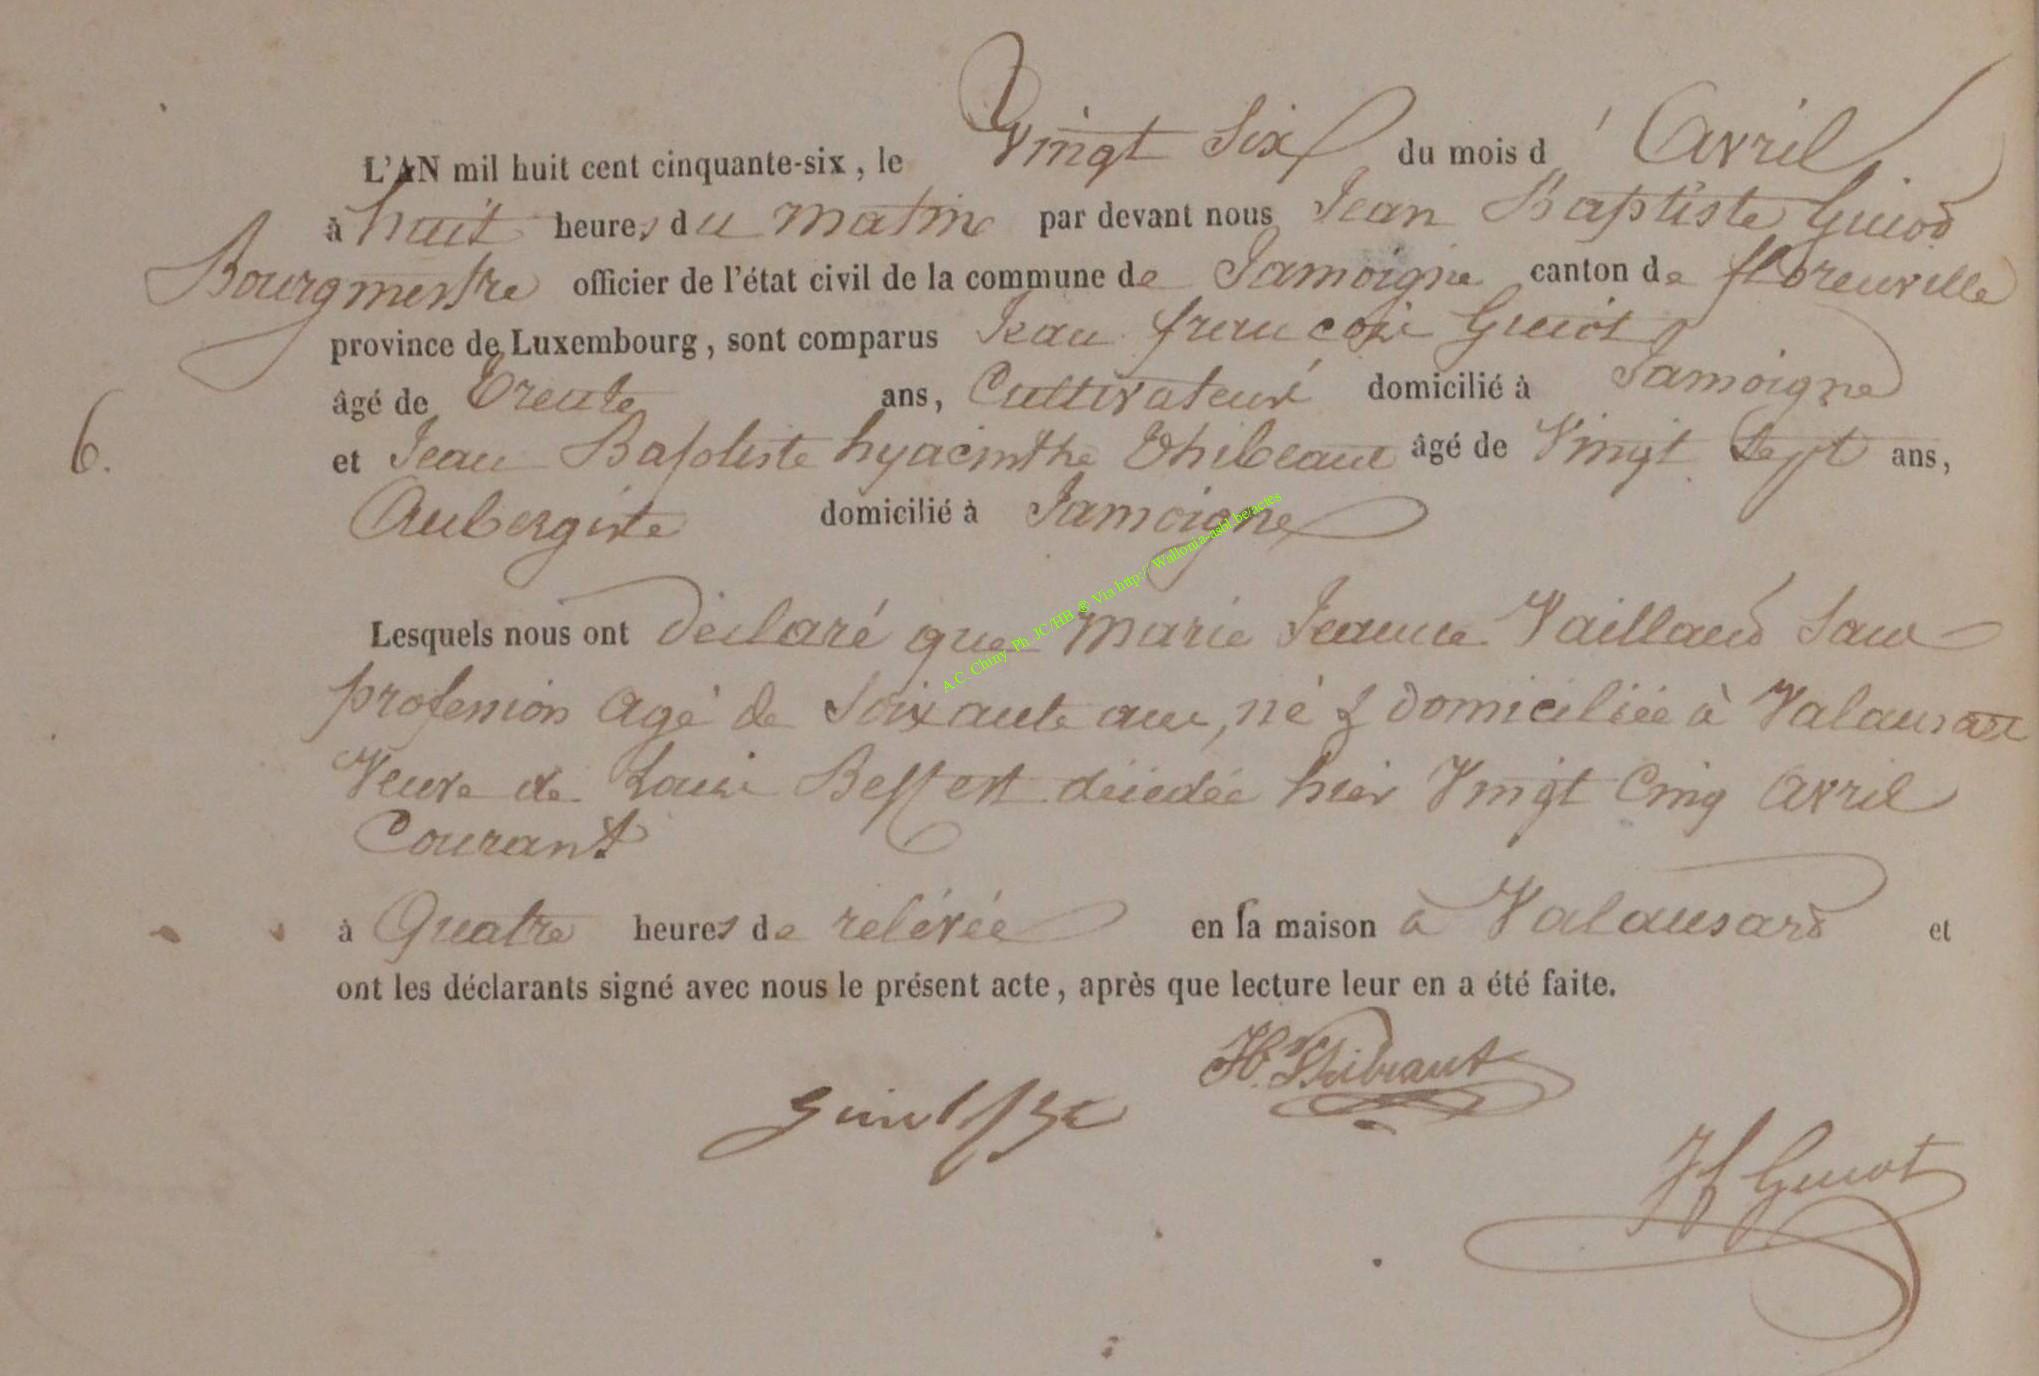 L'AN mil huit cent cinquante-six, le Vingt Six du mois d'Avril
à huit heures du matin par devant nous Jean Baptiste Guiot
Bourgmestre officier de l'état civil de la commune de Jamoigne canton de florenville
province de Luxembourg, sont comparus Jean francois Guiot
âgé de Trente ans, Cultivateur domicilié à Jamoigne
6.
et Jean Baptiste hyacinthe Thibeaut âgé de Vingt Sept ans,
Aubergiste domicilié à Jamoigne
Lesquels nous ont déclaré que Marie Jeanne Vaillant Sans
profession agé de Soixante ans, né & domiciliée à Valansart
Veuve de Louis est décédée hier Vingt Cinq Avril
Courant
à Quatre heures de relévée en sa maison à Valansard et
ont les déclarants signé avec nous le présent acte, après que lecture leur en a été faite.
H. Thibeaut
Guiot
Jf Guiot
A.C. Chiny Ph JC/HB @ Via http:// Wallonia-asbl.be/actes